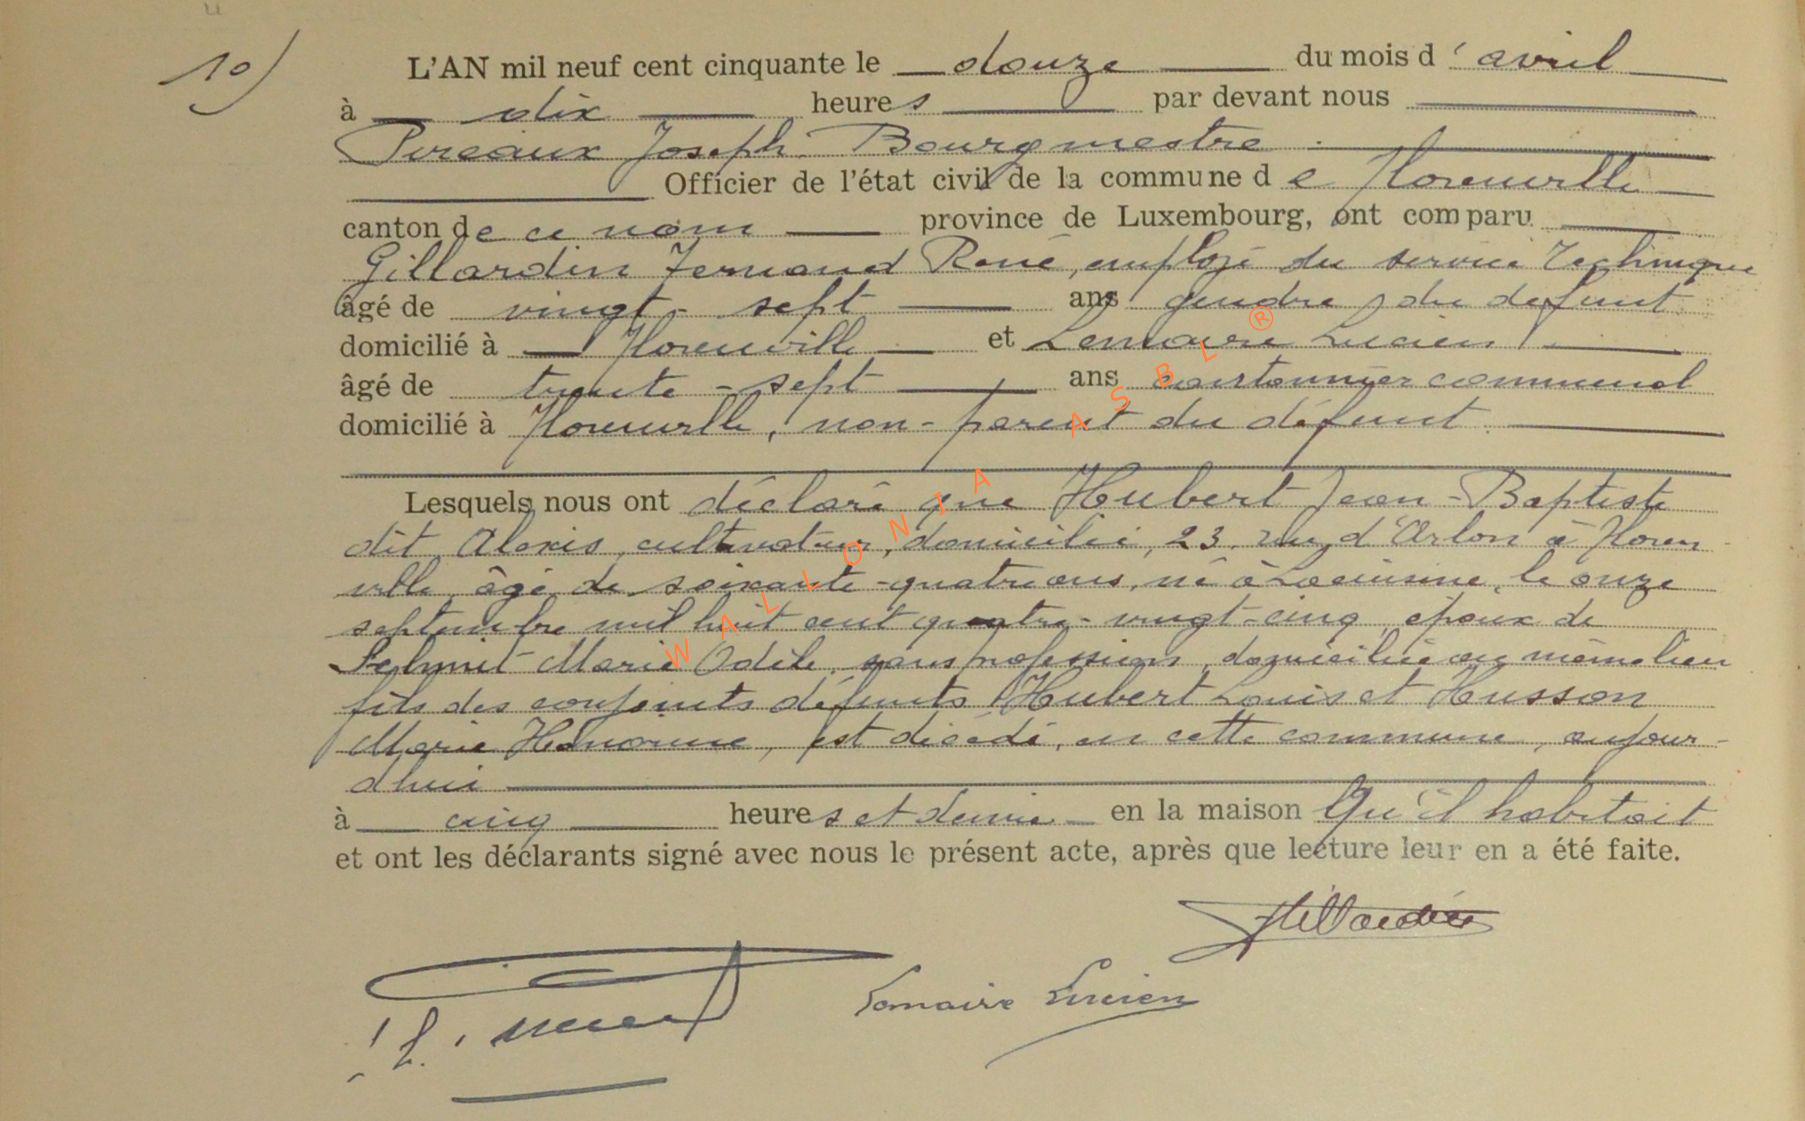 10)
L'AN mil neuf cent cinquante le douze du mois d'avril
à dix heures par devant nous
Pireaux Joseph Bourgmestre
Officier de l'état civil de la commune de Florenville
canton de ce nom province de Luxembourg, ont comparu
Gillardin Fernand René, employé du service Technique
âgé de vingt-sept ans gendre du défunt
domicilié à Florenville et Lemaire Lucien
âgé de trente-sept ans cantonnier communal
domicilié à Florenville, non-parent du défunt
Lesquels nous ont déclaré que Hubert Jean-Baptiste
dit Alexis, cultivateur, domicilié, 23, rue d'Arlon à Floren
ville, âgé de soixante-quatre ans, né à Lacuisine, le onze
septembre mil huit cent quatre-vingt-cinq, époux de
Schmit Marie Odile, sans profession, domiciliée au même lieu
fils des conjoints défunts Hubert Louis et Husson
Marie Honorine, est décédé, en cette commune, aujour-
d'hui
à cinq heures et demie en la maison Qu'il habitait
et ont les déclarants signé avec nous le présent acte, après que lecture leur en a été faite.
Gillardin
Lemaire Lucien
WALLONIA ASBL ®